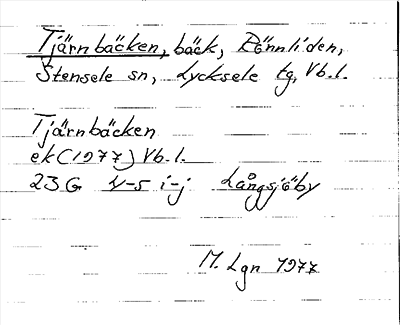 Tjärnbäcken, bäck, Rönnliden,
Stensele sn, Lycksele tg, Vb.l.
Tjärnbäcken
ek (1977) Vb.l.
23 G 4-5 i-j Långsjöby
M. Lgn 1977